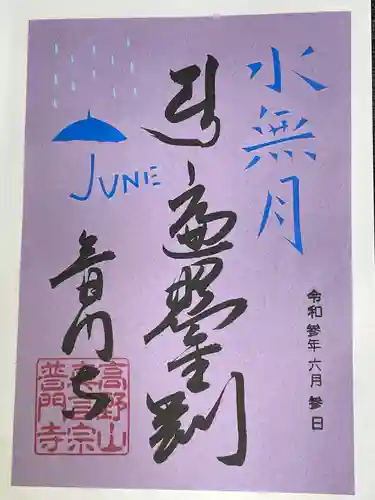 水無月
JUNE
遍照金剛
普門寺
令和参年六月参日
高野山
真言宗
普門寺